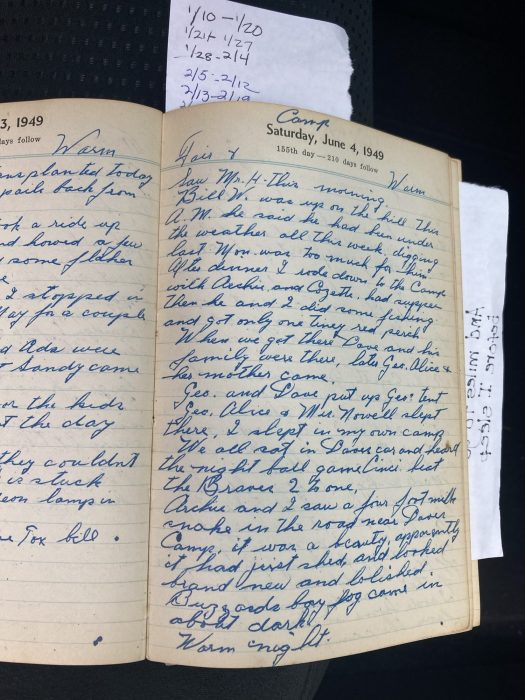 1/10 - 1/20
1/21 - 1/27
1/28 - 2/4
2/5 - 2/12
2/13 - 2/19
3, 1949
days follow
Warm
transplanted today
pails back from
took a ride up
nd howed a few
some flaher
e
I stopped in
May for a couple
d Ads were
t Sandy came
or the kids
t the day
they couldn't
is stuck
eon lamp in
e Tox bill.
Camp
Saturday, June 4, 1949
155th day — 210 days follow
Fair & Warm
Saw Mr. H. this morning.
Bill W. was up on the hill this
A.M. he said he had been under
the weather all this week, digging
last Mon. was too much for him.
After dinner I rode down to the Camp
with Archie and Cozette, had supper
then he and I did some fishing
and got only one tiney red perch.
When we got there Dave and his
family were there, later Geo. Alice &
her mother came.
Geo. and Dave put up Geo's tent
Geo. Alice & Mrs. Nowell slept
there, I slept in my own camp.
We all sat in Daves car and heard
the night ball game Cinci beat
the Braves 2 to one,
Archie and I saw a four foot milk
snake in the road near Daves
Camp, it was a beauty, apparently
it had just shed, and looked
brand new and polished.
Buzzards bay fog came in
about dark.
Warm night.
And miles to go
before I sleep